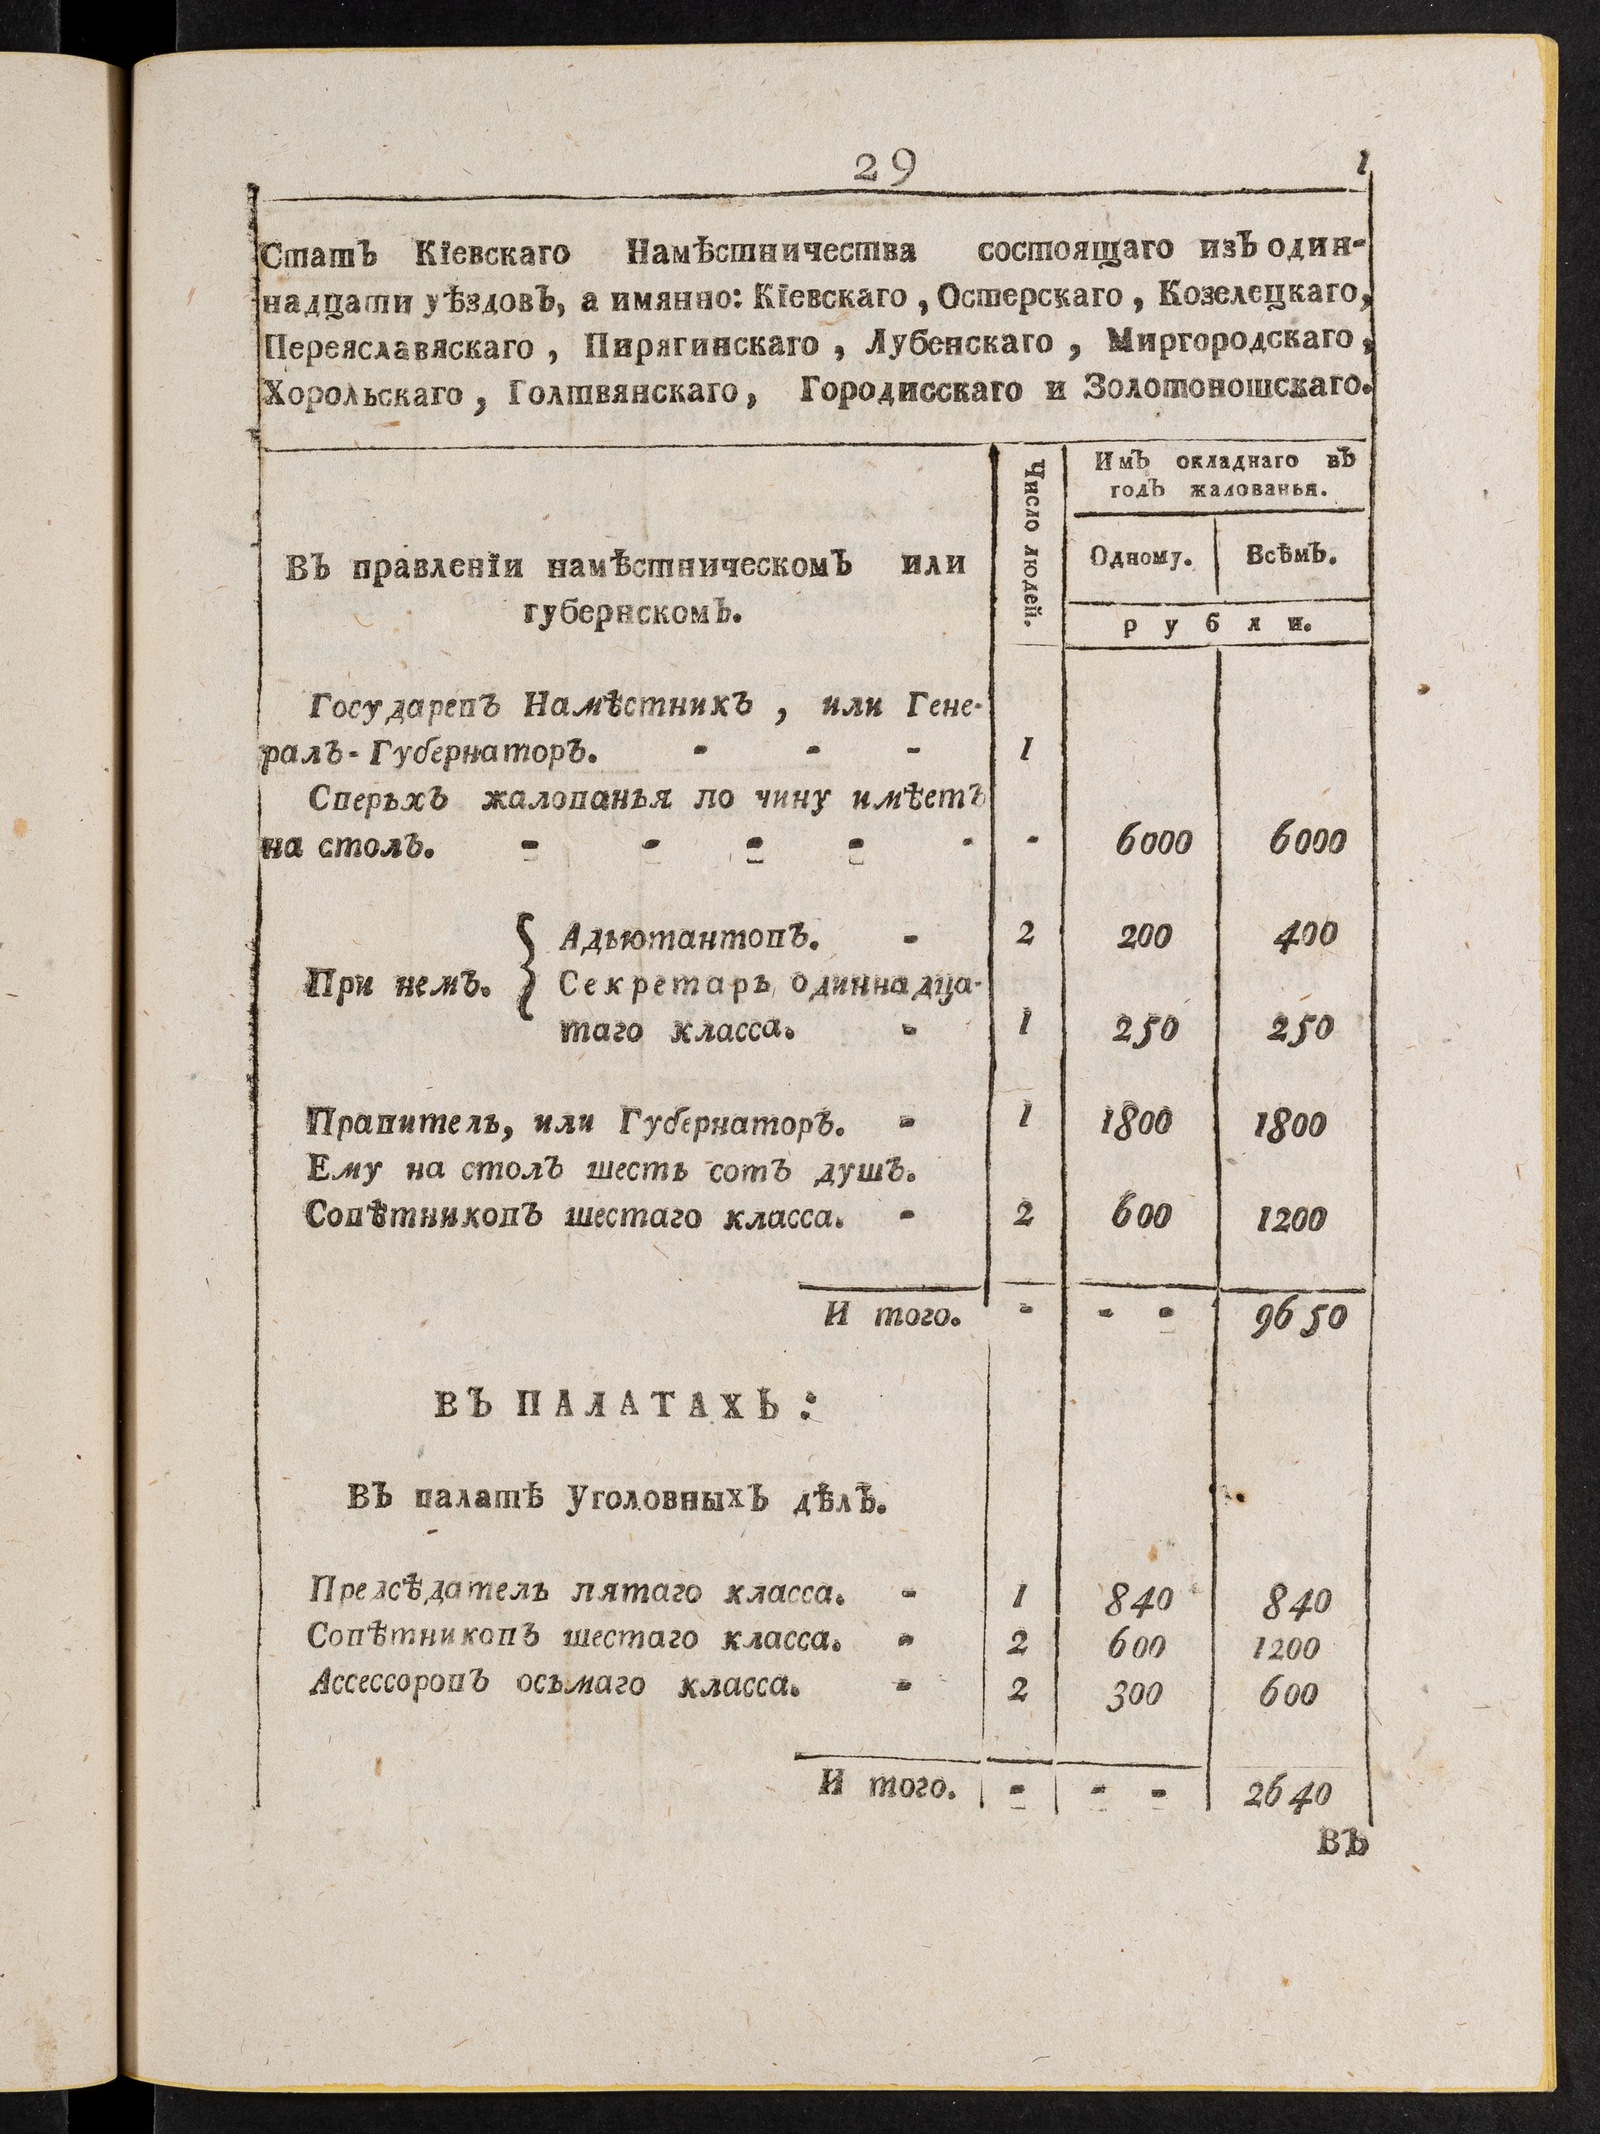 29
1
Статъ Кїевскаго Намѣстничества состоящаго изъ один-
надцати уѣздовъ, а имянно: Кїевскаго, Остерскаго, Козелецкаго,
Переяславяскаго, Пирягинскаго, Лубенскаго, Миргородскаго,
Хорольскаго, Голтвянскаго, Городисскаго и Золотоношскаго.
Число людей.
Имъ окладнаго въ
годъ жалованья.
Въ правленїи намѣстническомъ или
губернскомъ.
Одному. Всѣмъ.
рубли.
Государевъ Намѣстникъ, или Гене-
ралъ-Губернаторъ. - - - 1
Сверьхъ жалованья по чину имѣетъ
на столъ. - - - - - - 6000 6000
Адъютантовъ. - 2 200 400
При немъ. { Секретарь одиннадца-
таго класса. - 1 250 250
Правитель, или Губернаторъ. - 1 1800 1800
Ему на столъ шесть сотъ душъ.
Совѣтниковъ шестаго класса. - 2 600 1200
И того. - - - 9650
ВЪ ПАЛАТАХЪ:
Въ палатѣ Уголовныхъ дѣлъ.
Предсѣдатель пятаго класса. - 1 840 840
Совѣтниковъ шестаго класса. - 2 600 1200
Ассессоровъ осьмаго класса. - 2 300 600
И того. - - - 2640
Въ